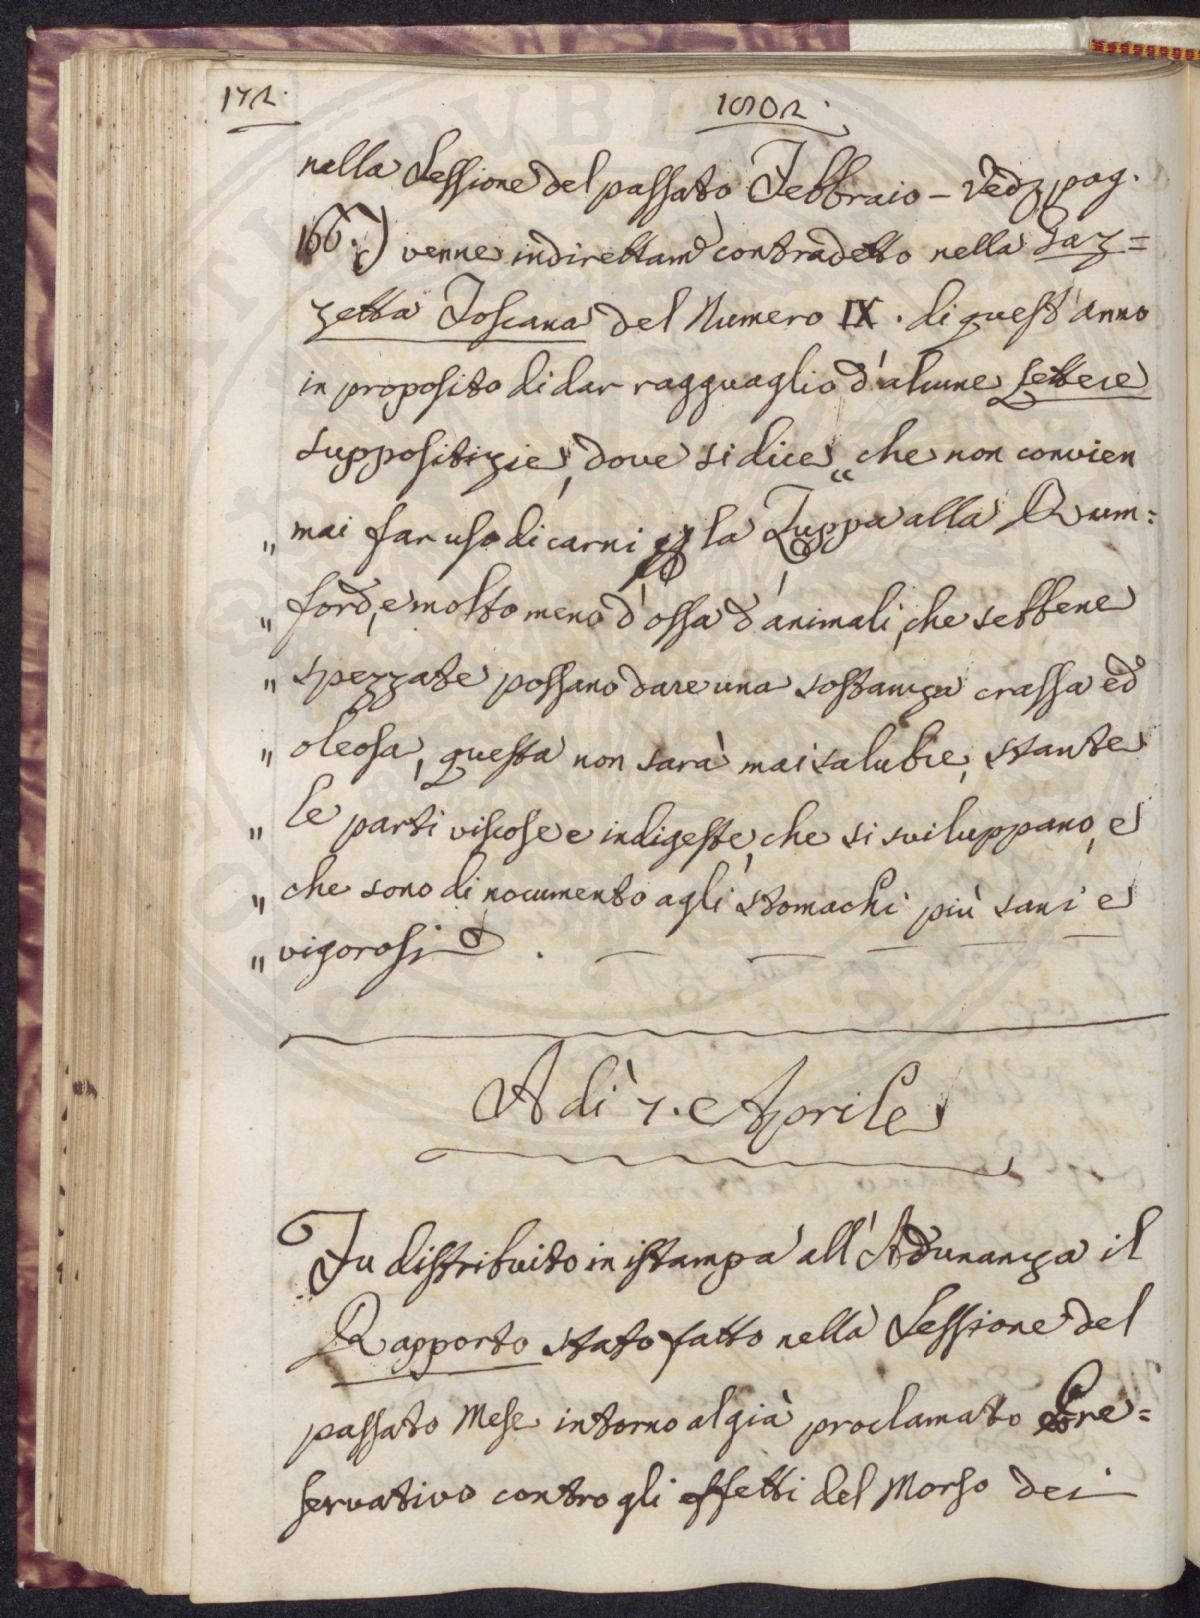 172.
1802.
nella Sessione del passato Febbraio – Ved. pag.
166.) venne indirettam. contradetto nella Gaz=
zetta Toscana del Numero IX. di quest'anno
in proposito di dar ragguaglio d'alcune Lettere
suppositizie, dove si dice „ che non convien
„ mai far uso di carni per la Zuppa alla Rum=
„ ford, e molto meno d'ossa d'animali, che sebbene
„ spezzate possano dare una sostanza crassa ed
„ oleosa, questa non sarà mai salubre, stante
„ le parti viscose e indigeste, che si sviluppano, e
„ che sono di nocumento agli stomachi più sani e
„ vigorosi .
A dì 7. Aprile
Fu distribuito in istampa all'Adunanza il
Rapporto stato fatto nella Sessione del
passato Mese intorno al già proclamato Pre=
servativo contro gli effetti del Morso dei